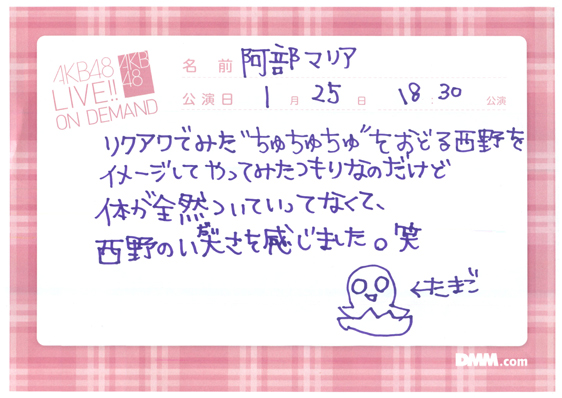 AKB48
LIVE!!
ON DEMAND
AKB
48
名 前 阿部マリア
公演日 1月25日 18:30 公演
リクアワでみた“ちゅちゅちゅ”をおどる西野を
イメージしてやってみたつもりなのだけど
体が全然ついていってなくて、
西野のい大さを感じました。笑
←たまご
DMM.com